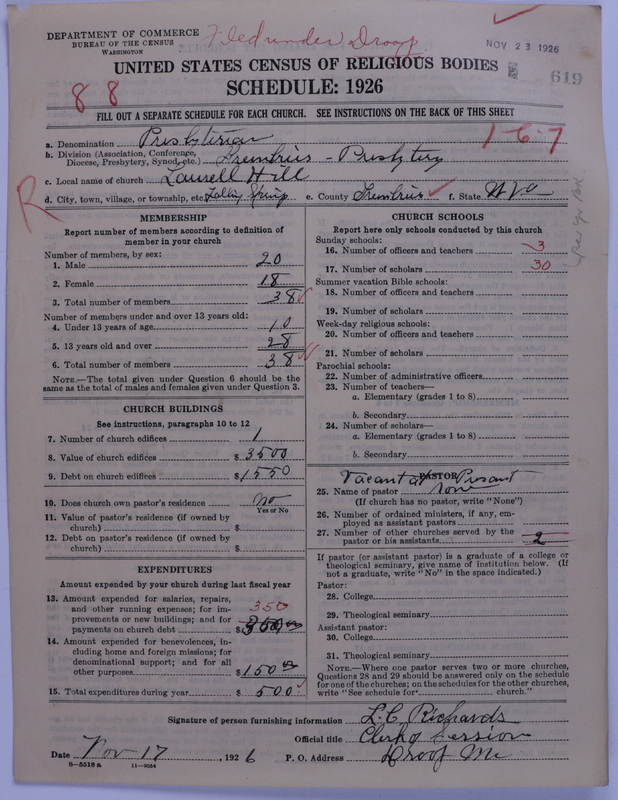 DEPARTMENT OF COMMERCE
BUREAU OF THE CENSUS
WASHINGTON
Filed under Droop
NOV 23 1926
UNITED STATES CENSUS OF RELIGIOUS BODIES
619
SCHEDULE: 1926
88
FILL OUT A SEPARATE SCHEDULE FOR EACH CHURCH. SEE INSTRUCTIONS ON THE BACK OF THIS SHEET
1-6-7
a. Denomination Presbyterian
b. Division (Association, Conference, Diocese, Presbytery, Synod, etc.) Greenbrier - Presbytery
c. Local name of church Laurell Hill
R
d. City, town, village, or township, etc. Falling Spring e. County Greenbrier f. State W Va
MEMBERSHIP
Report number of members according to definition of member in your church
Number of members, by sex:
1. Male 20
2. Female 18
3. Total number of members 38
Number of members under and over 13 years old:
4. Under 13 years of age 10
5. 13 years old and over 28
6. Total number of members 38
NOTE.—The total given under Question 6 should be the same as the total of males and females given under Question 3.
CHURCH BUILDINGS
See instructions, paragraphs 10 to 12
7. Number of church edifices 1
8. Value of church edifices $ 3500
9. Debt on church edifices $ 1550
10. Does church own pastor's residence no
Yes or No
11. Value of pastor's residence (if owned by church) $
12. Debt on pastor's residence (if owned by church) $
EXPENDITURES
Amount expended by your church during last fiscal year
13. Amount expended for salaries, repairs, and other running expenses; for improvements or new buildings; and for payments on church debt 350 $
14. Amount expended for benevolences, including home and foreign missions; for denominational support; and for all other purposes $ 150 00
15. Total expenditures during year $ 500
CHURCH SCHOOLS
Report here only schools conducted by this church
Sunday schools:
16. Number of officers and teachers 3
17. Number of scholars 30
Summer vacation Bible schools:
18. Number of officers and teachers
19. Number of scholars
Week-day religious schools:
20. Number of officers and teachers
21. Number of scholars
Parochial schools:
22. Number of administrative officers
23. Number of teachers—
a. Elementary (grades 1 to 8)
b. Secondary
24. Number of scholars—
a. Elementary (grades 1 to 8)
b. Secondary
PASTOR
Vacant at Present
25. Name of pastor none
(If church has no pastor, write "None")
26. Number of ordained ministers, if any, employed as assistant pastors
27. Number of other churches served by the pastor or his assistants 2
If pastor (or assistant pastor) is a graduate of a college or theological seminary, give name of institution below. (If not a graduate, write "No" in the space indicated.)
Pastor:
28. College
29. Theological seminary
Assistant pastor:
30. College
31. Theological seminary
NOTE.—Where one pastor serves two or more churches, Questions 28 and 29 should be answered only on the schedule for one of the churches; on the schedules for the other churches, write "See schedule for church."
Signature of person furnishing information L. C. Richards
Official title Clerk of Session
Date Nov 17, 1926 P. O. Address Droop
8—5518 a 11—9034